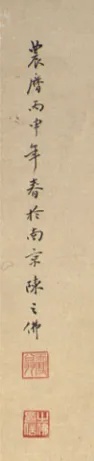 農曆丙申年春於南京陳之佛